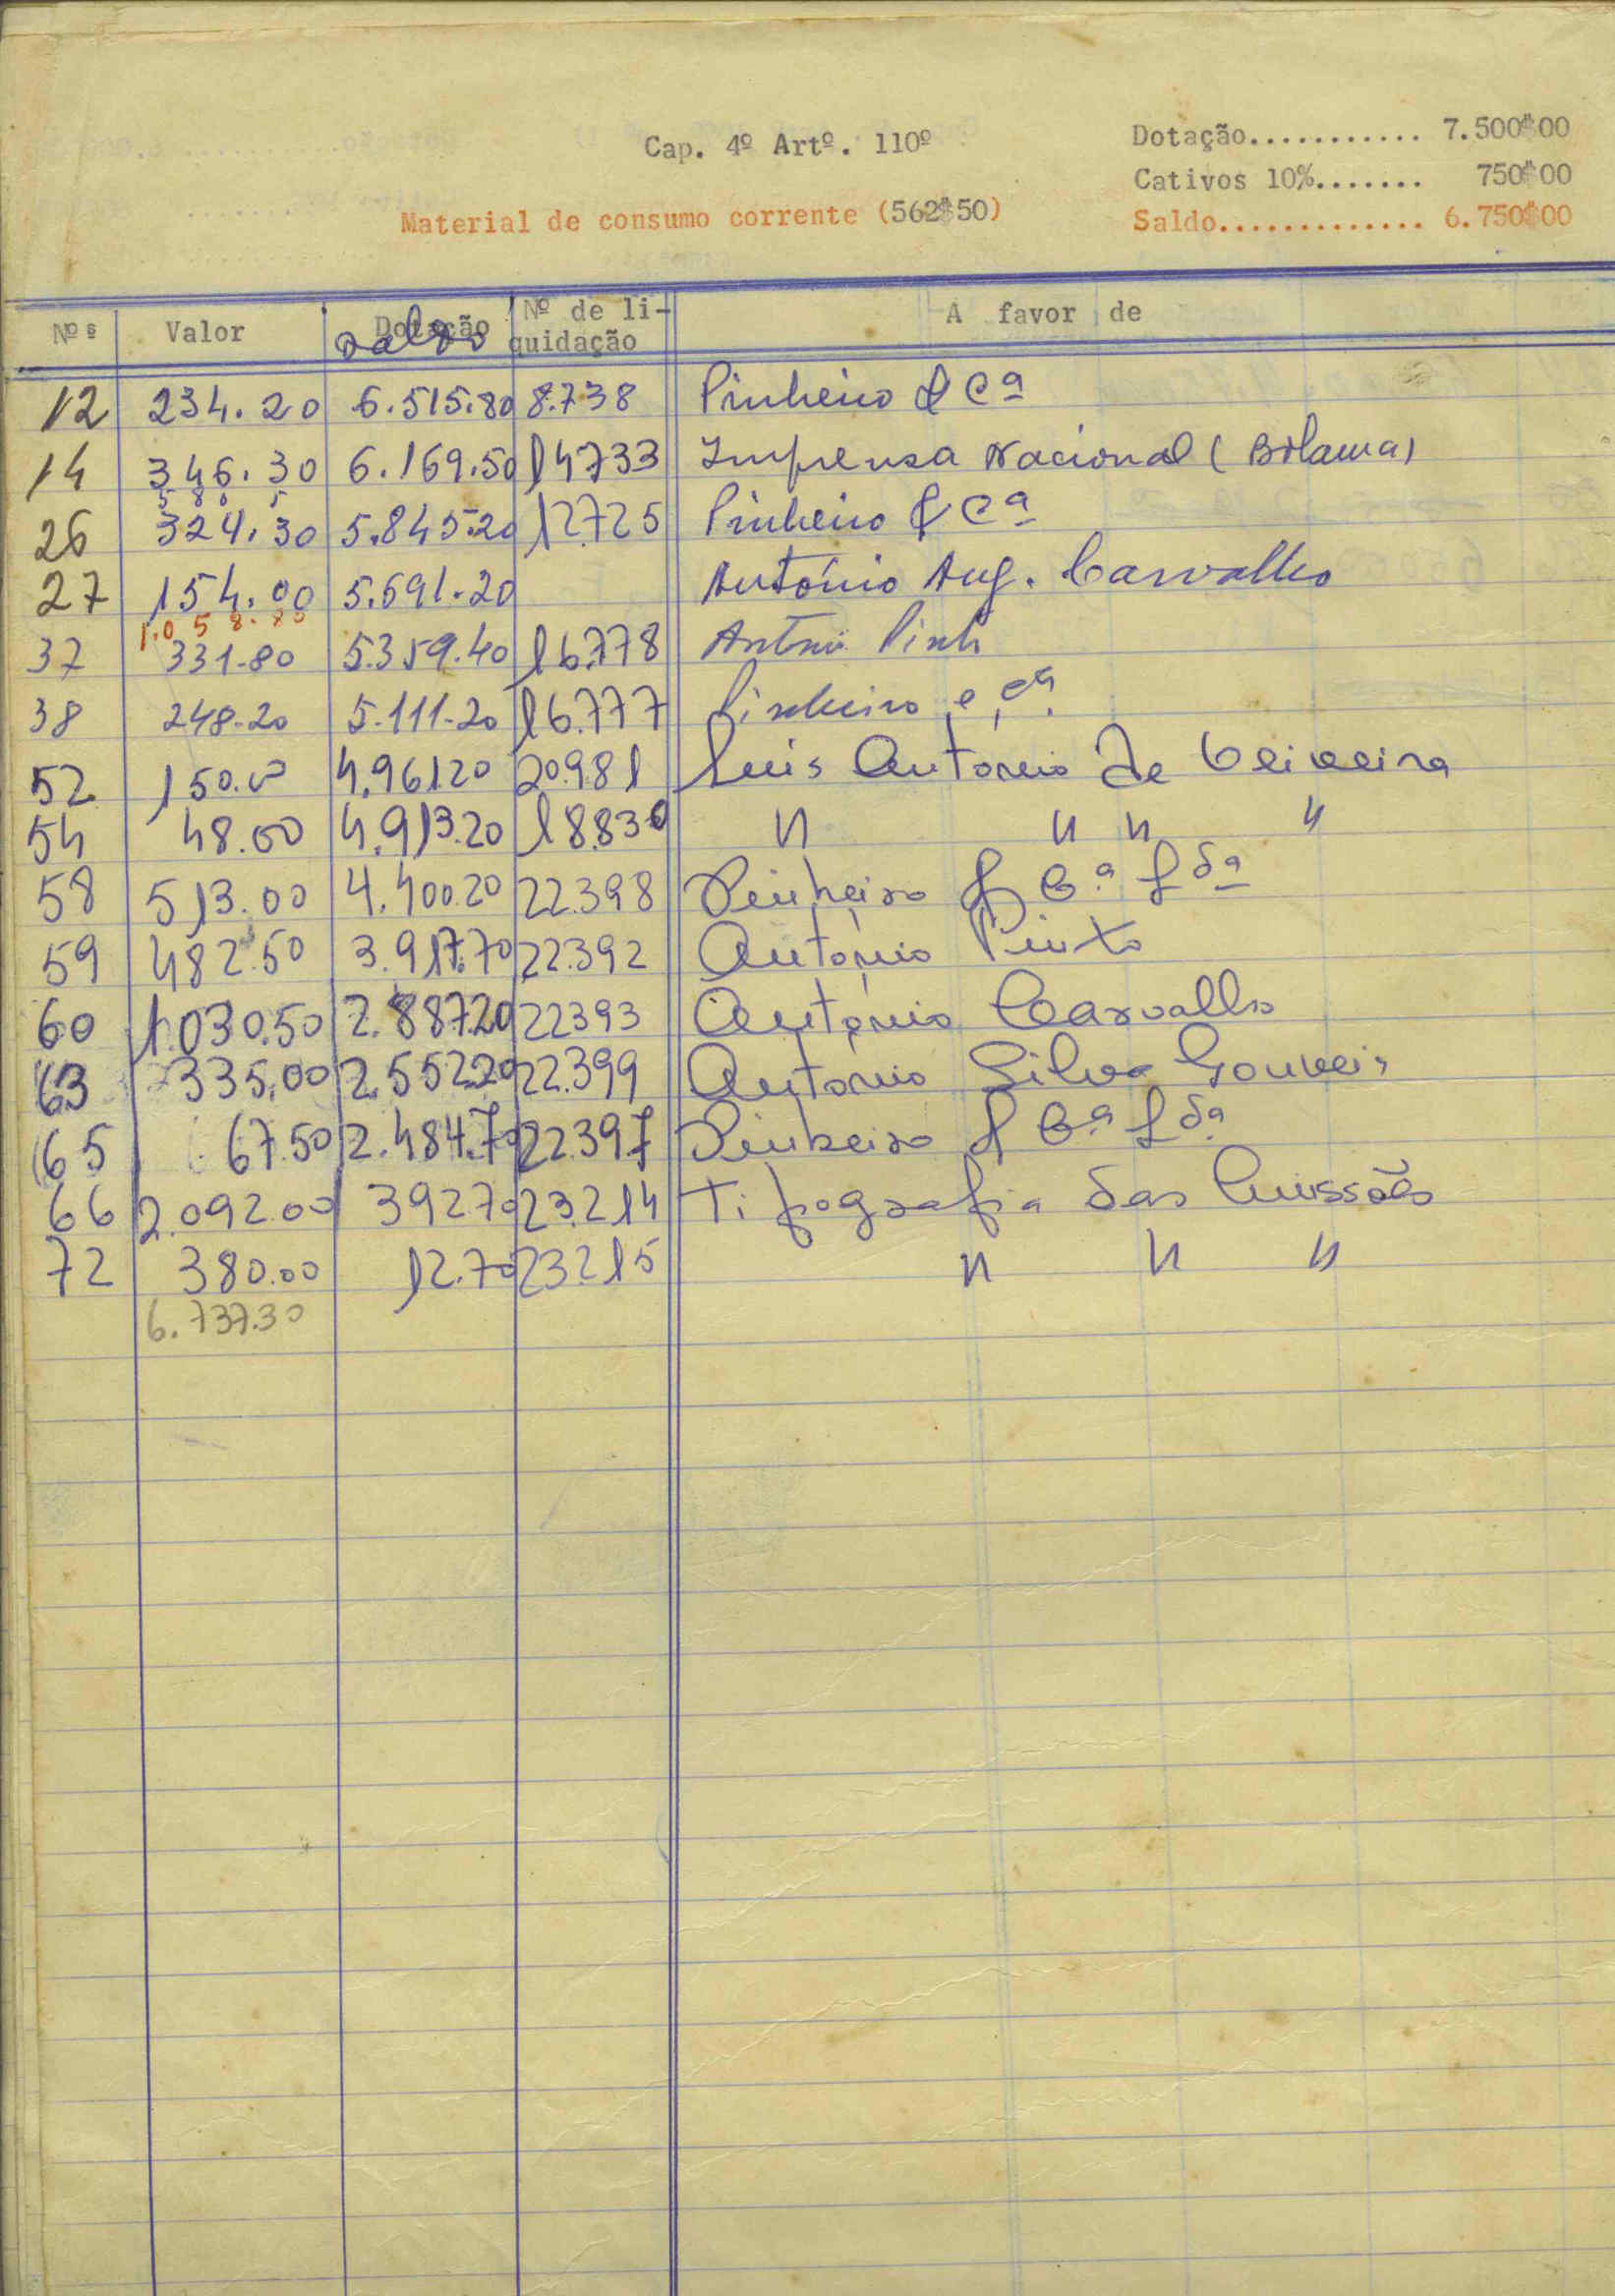 Cap. 4º Artº. 110º
Dotação........... 7.500$00
Cativos 10%....... 750$00
Material de consumo corrente (562$50)
Saldo............. 6.750$00
Nºs Valor Dotação saldo Nº de li-quidação A favor de
12 234.20 6.515.80 8.738 Pinheiro & Cª
14 346.30 6.169.50 14733 Imprensa Nacional (Bolama)
580 5
26 324.30 5.845.20 12.725 Pinheiro & Cª
27 154.00 5.691.20 António Aug. Carvalho
1.058.80
37 331.80 5.359.40 16.778 António Pinto
38 248.20 5.111.20 16.777 Pinheiro e Cª.
52 150.00 4.961.20 20.981 Luis Antonio de Oliveira
54 48.00 4.913.20 18.830 " " " "
58 513.00 4.400.20 22.398 Pinheiro & Cª Ldª
59 482.50 3.917.70 22.392 Antonio Pinto
60 1.030.50 2.887.20 22393 Antonio Carvalho
63 335.00 2.552.20 22.399 Antonio Silva Gouveia
65 67.50 2.484.70 22.397 Pinheiro & Cª Ldª
66 2.092.00 392.70 23.214 Tipografia das Missões
72 380.00 12.70 23215 " " "
6.737.30